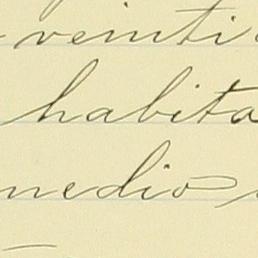 veinti
habita
medio